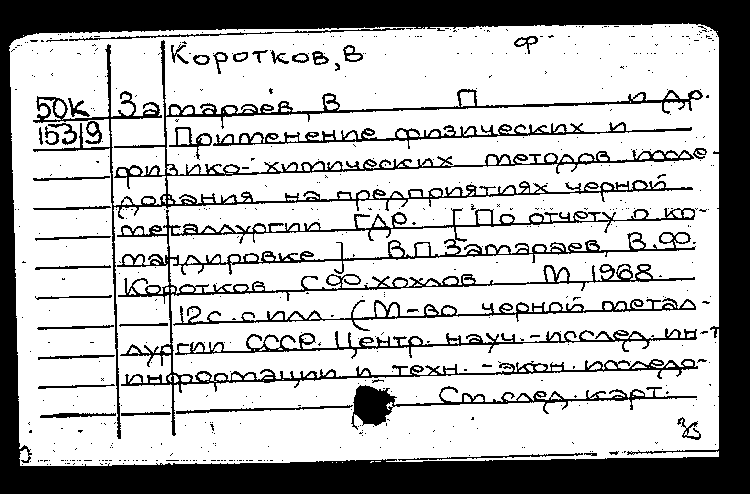 Коротков, В ф
50К Затараев, В П и др.
153/9 Применение физических и
физико-химических методов иссле-
дования на предприятиях черной
металлургии ГДР. [По отчету о ко-
мандировке]. В.П.Затараев, В.Ф.
Коротков, С.Ф.Хохлов. М, 1968.
12с. с илл. (М-во черной метал-
лургии СССР. Центр. науч.-исслед. ин-т
информации и техн.-экон. исследо-
См.след.карт.